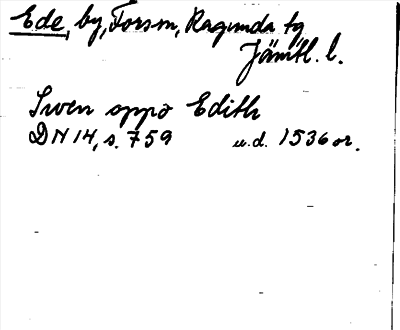 Ede, by, Forsm, Ragunda tg
Jämtl. l.
Swen oppo Edith
DN 14, s. 759 u.d. 1536 or.